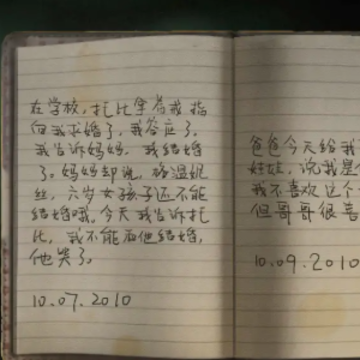 在学校，托比拿着戒指
向我求婚了，我答应了。
我告诉妈妈，我结婚
了。妈妈却说，洛温妮
丝，六岁女孩子还不能
结婚哦。今天我告诉托
比，我不能和他结婚，
他哭了。
10.07.2010
爸爸今天给我
娃娃，说我是
我不喜欢这个
但哥哥很喜
10.09.2010